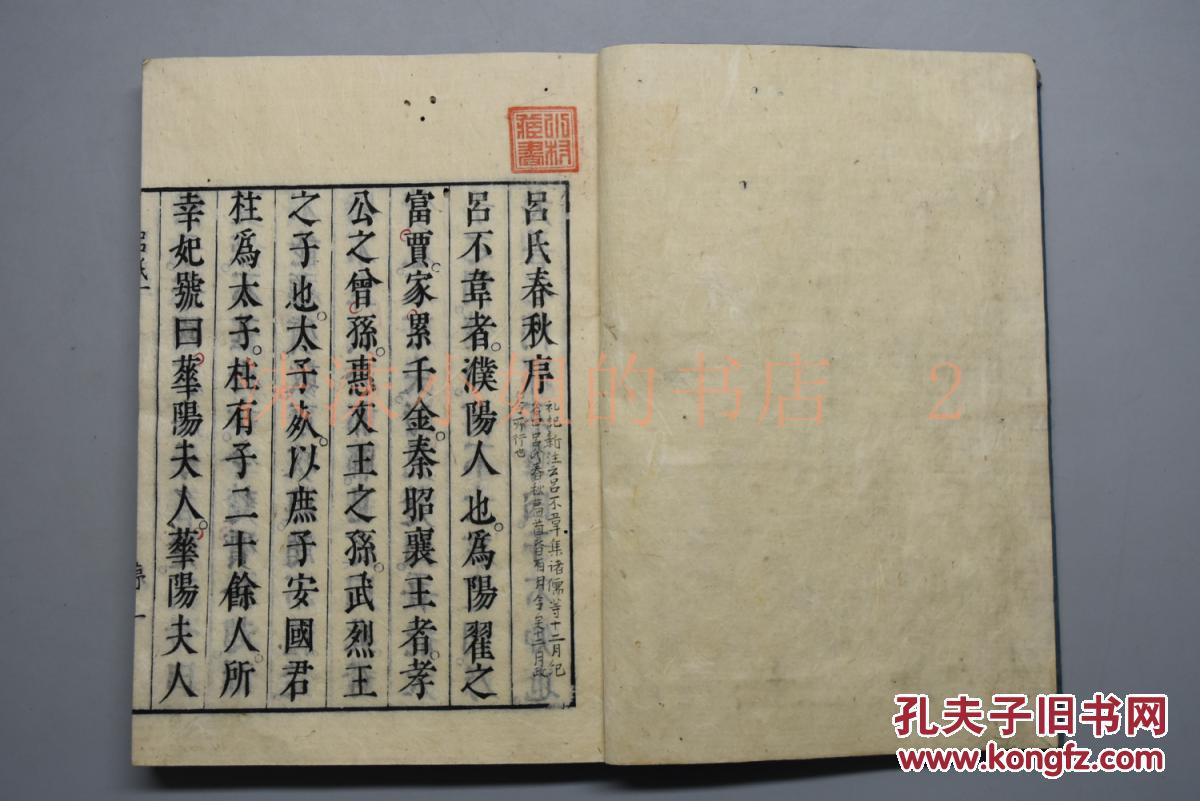 呂氏春秋序
礼記新注云呂不韋集諸儒等十二月紀
今亦行也
呂不韋者濮陽人也。爲陽翟之
富賈。家累千金。秦昭襄王者。孝
公之曾孫。惠文王之孫。武烈王
之子也。太子夙。以庶子安國君
柱爲太子。柱有子二十餘人。所
幸妃號曰蕐陽夫人。蕐陽夫人
呂氏一
序一
藏書
沫沫小姐的书店 2
孔夫子旧书网
www.kongfz.com